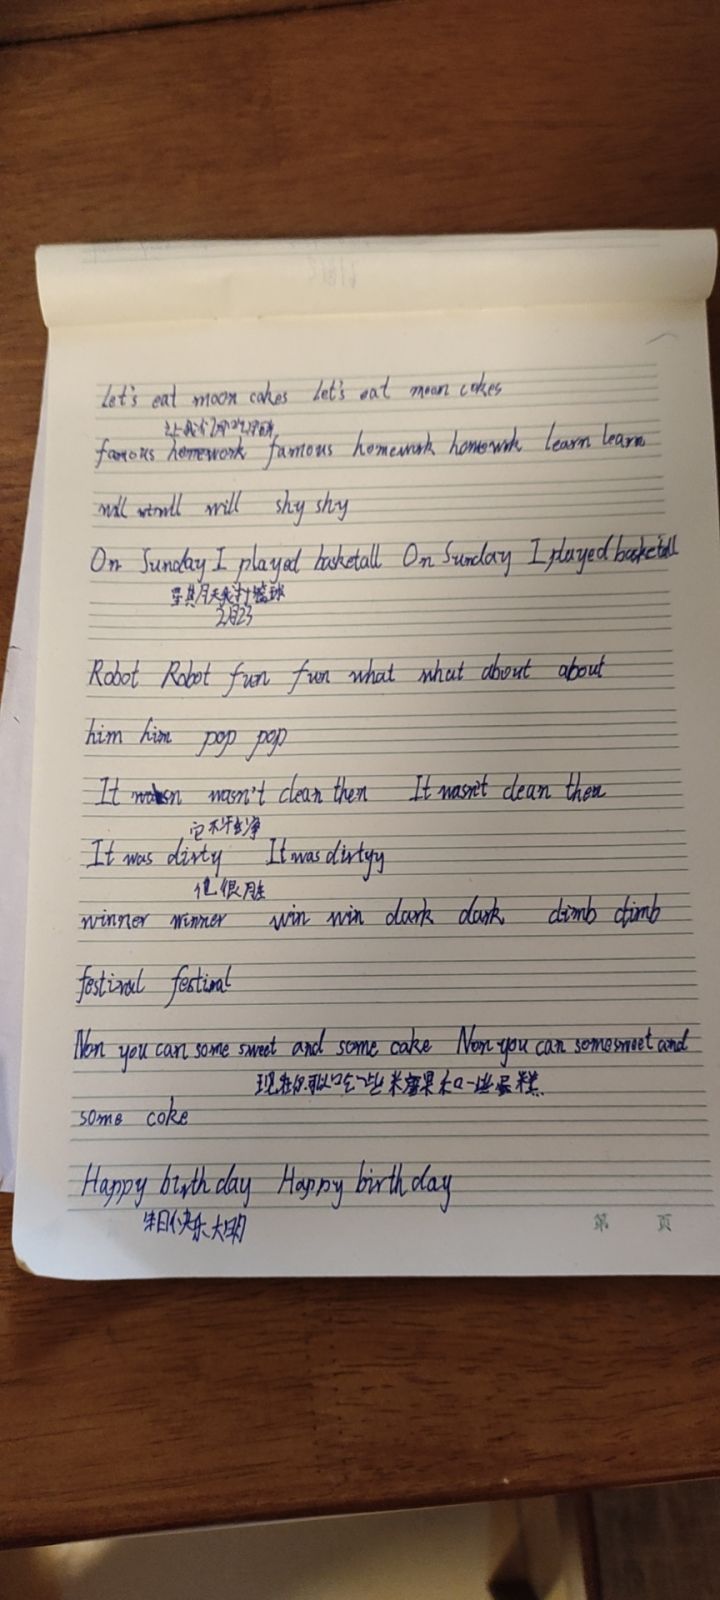 Let's eat moon cakes Let's eat moon cakes
让我们吃月饼
famous homework famous homework homework learn learn
will will shy shy
On Sunday I played basketall On Sunday I played basketall
星其月天我打篮球
2月23
Robot Robot fun fun what what about about
him him pop pop
It wasn wasn't clean then It wasn't clean then
它不干净
It was dirty It was dirtyy
他很脏
winner winner win win dark dark climb climb
festival festival
Now you can some sweet and some cake Now you can some sweet and
现在你可以吃一些米唐果和一些蛋糕
some coke
Happy birth day Happy birth day
生日快乐大明
第 页